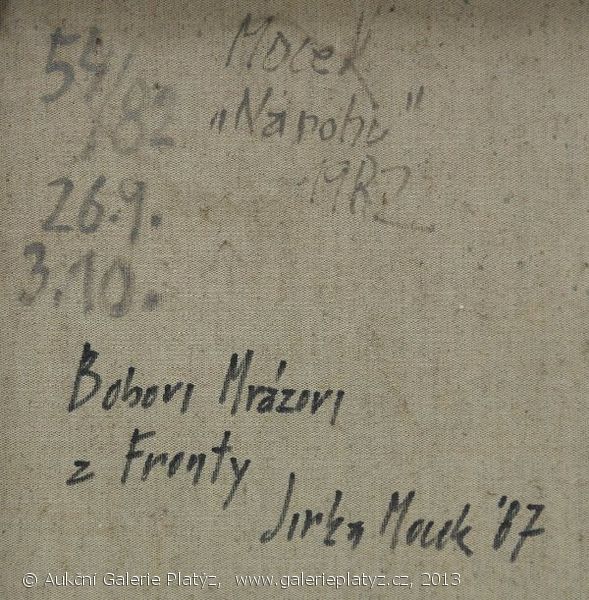 54/82
26.9.
3.10.
Mocek
„Na rohu"
1982
Bobovi Mrázovi
z Fronty
Jirka Mocek '87
© Aukční Galerie Platýz, www.galerieplatyz.cz, 2013